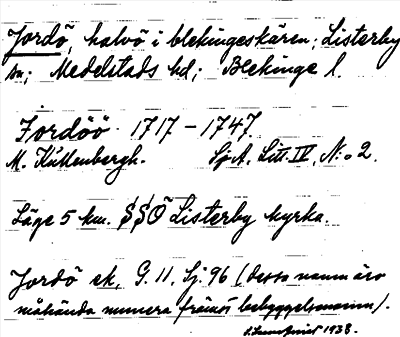 Jordö, halvö i blekingeskären; Listerby
sn; Medelstads hd; Blekinge l.
Jordöö 1717 – 1747
M. Kullenbergh. SjA, Litt. IV, N:o 2.
Läge 5 km. SSO Listerby kyrka.
Jordö ek, G. 11, Sj. 96 (dessa namn äro
måhända numera främst bebyggelsenamn).
1938.